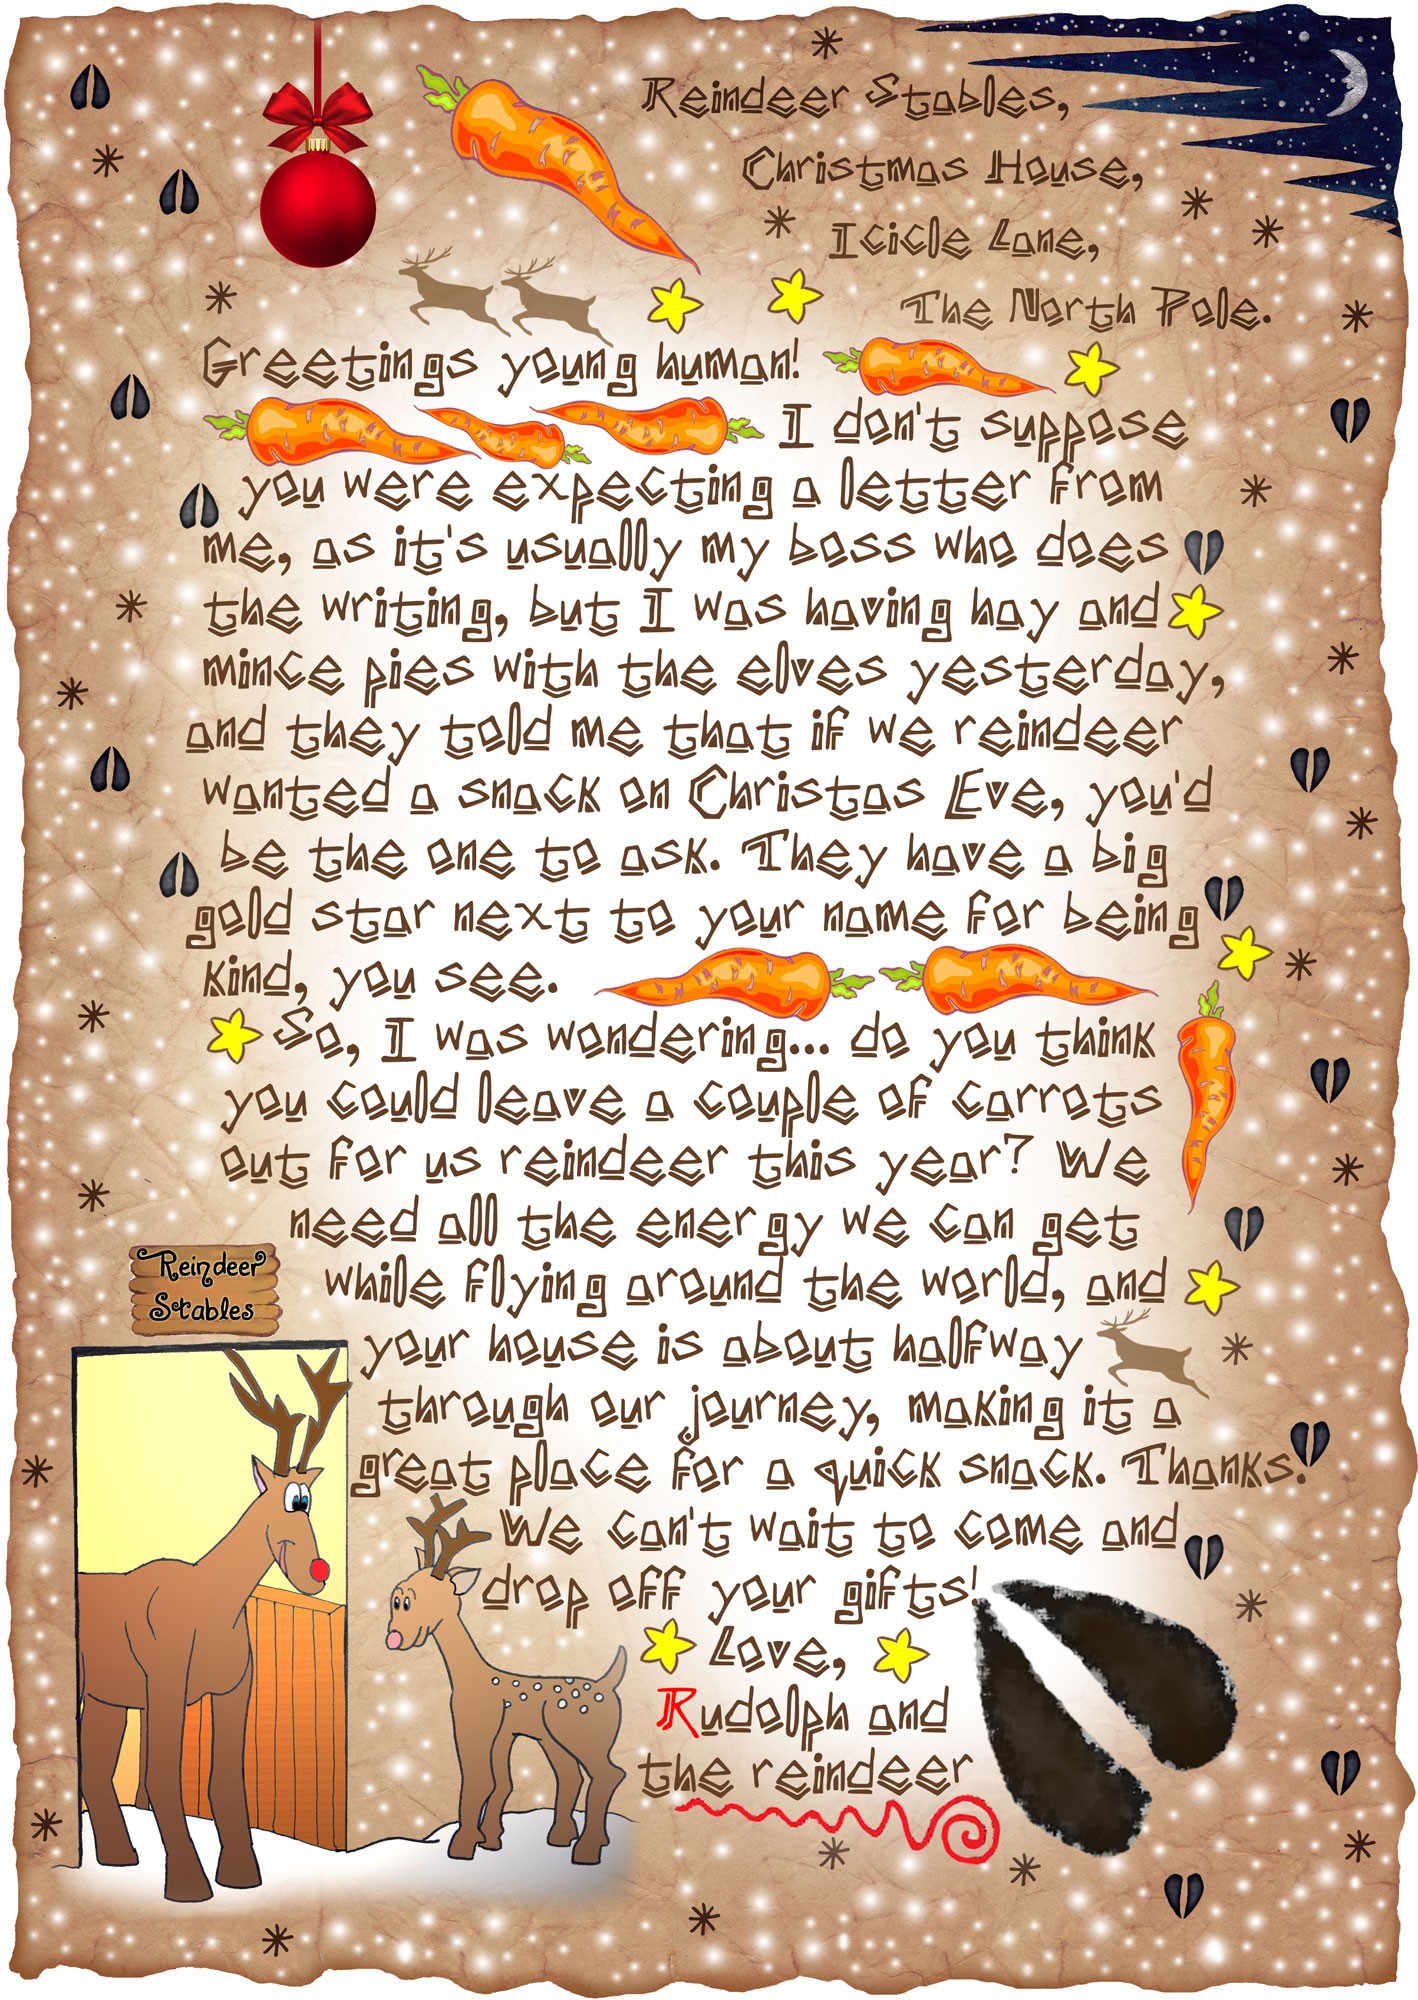 Reindeer Stables,
Christmas House,
Icicle Lane,
The North Pole.
Greetings young human!
I don't suppose
you were expecting a letter from
me, as it's usually my boss who does
the writing, but I was having hay and
mince pies with the elves yesterday,
and they told me that if we reindeer
wanted a snack on Christas Eve, you'd
be the one to ask. They have a big
gold star next to your name for being
kind, you see.
So, I was wondering... do you think
you could leave a couple of carrots
out for us reindeer this year? We
need all the energy we can get
while flying around the world, and
your house is about halfway
through our journey, making it a
great place for a quick snack. Thanks.
We can't wait to come and
drop off your gifts!
Love,
Rudolph and
the reindeer
Reindeer
Stables